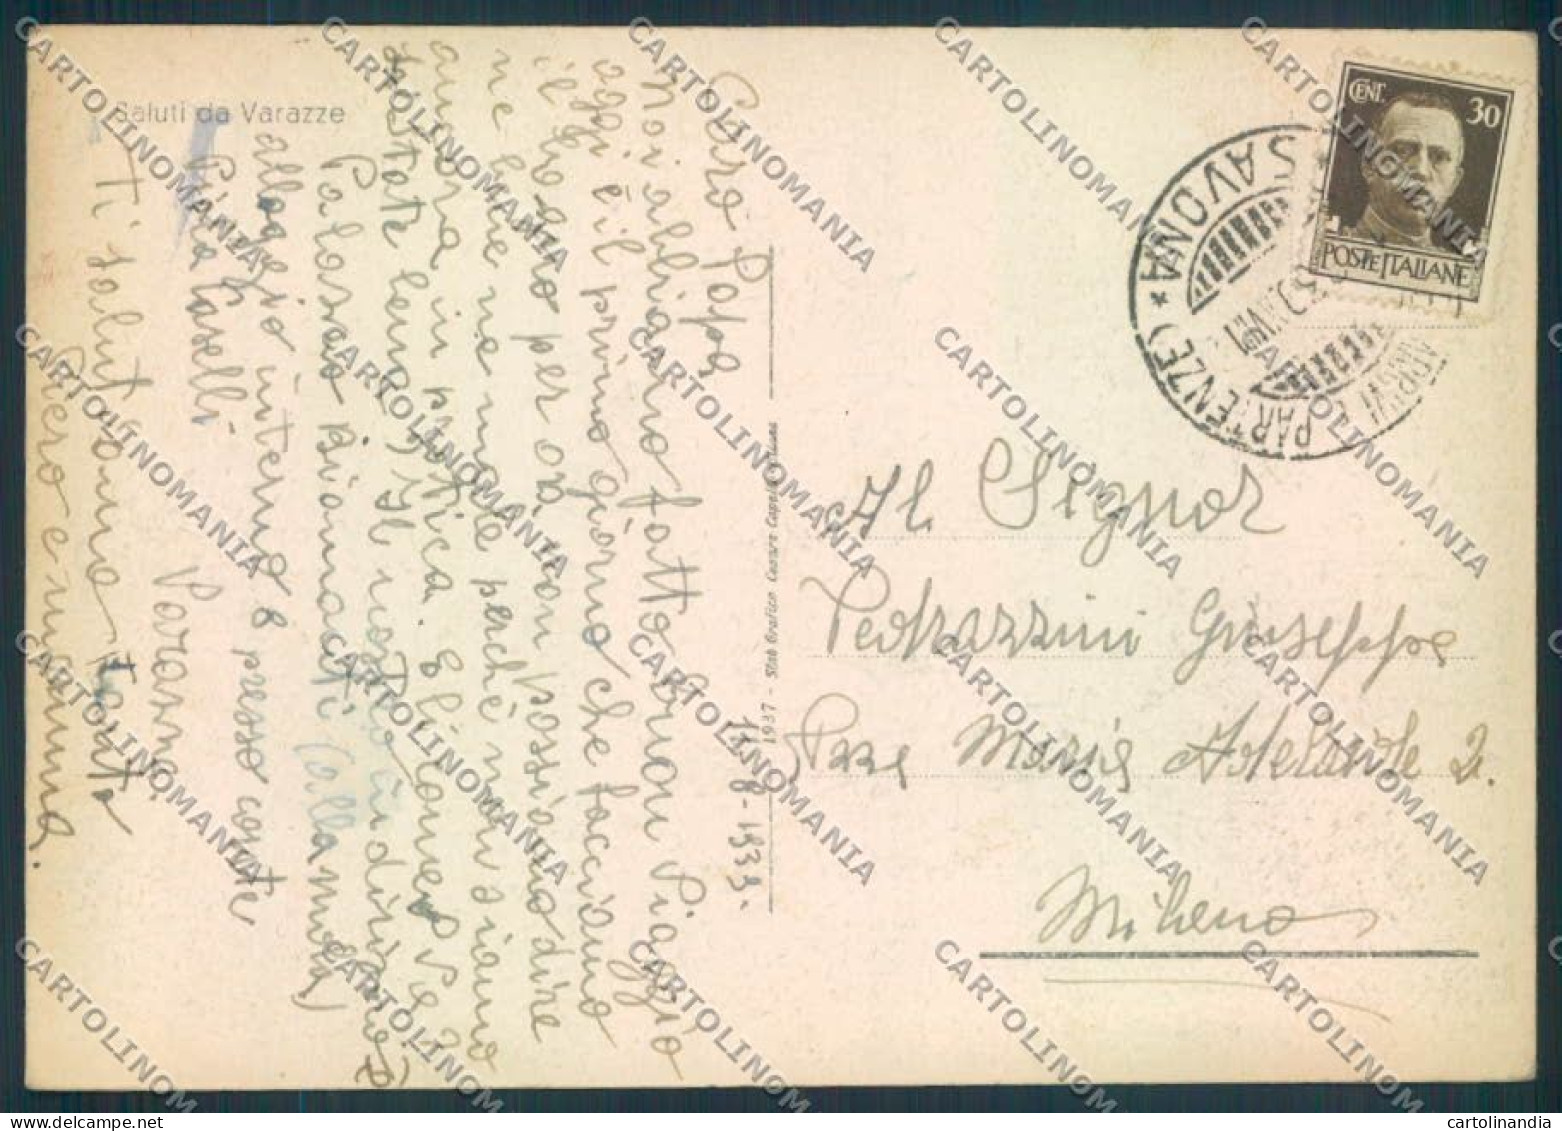 Saluti da Varazze
11-8-1939.
Caro Papà
Noi abbiamo fatto buon viaggio
oggi è il primo giorno che facciamo
il bagno per ora non possiamo dire
ne bene ne male perché non siamo
ancora in pratica.
(state bene) Il nostro indirizzo
Palazzo Bianmati
alloggio interno 8 presso conte
Piera Caselli
Varazze
Ti salutiamo tanto
Piero e mamma.
1937 - Stab Grafico Cesare Capello - Milano
CENT. 30
POSTE ITALIANE
SAVONA
(ARRIVI E PARTENZE)
Al Signor
Pedrazzini Giuseppe
Pzza Maria Adelaide 2.
Milano
CARTOLINOMANIA
cartolinandia